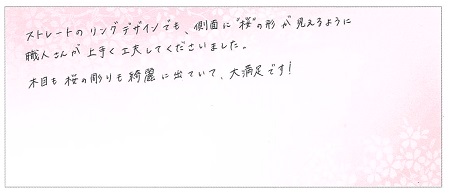 ストレートのリングデザインでも、側面に"桜"の形が見えるように
職人さんが上手く工夫してくださいました。
木目も桜の彫りも綺麗に出ていて、大満足です!